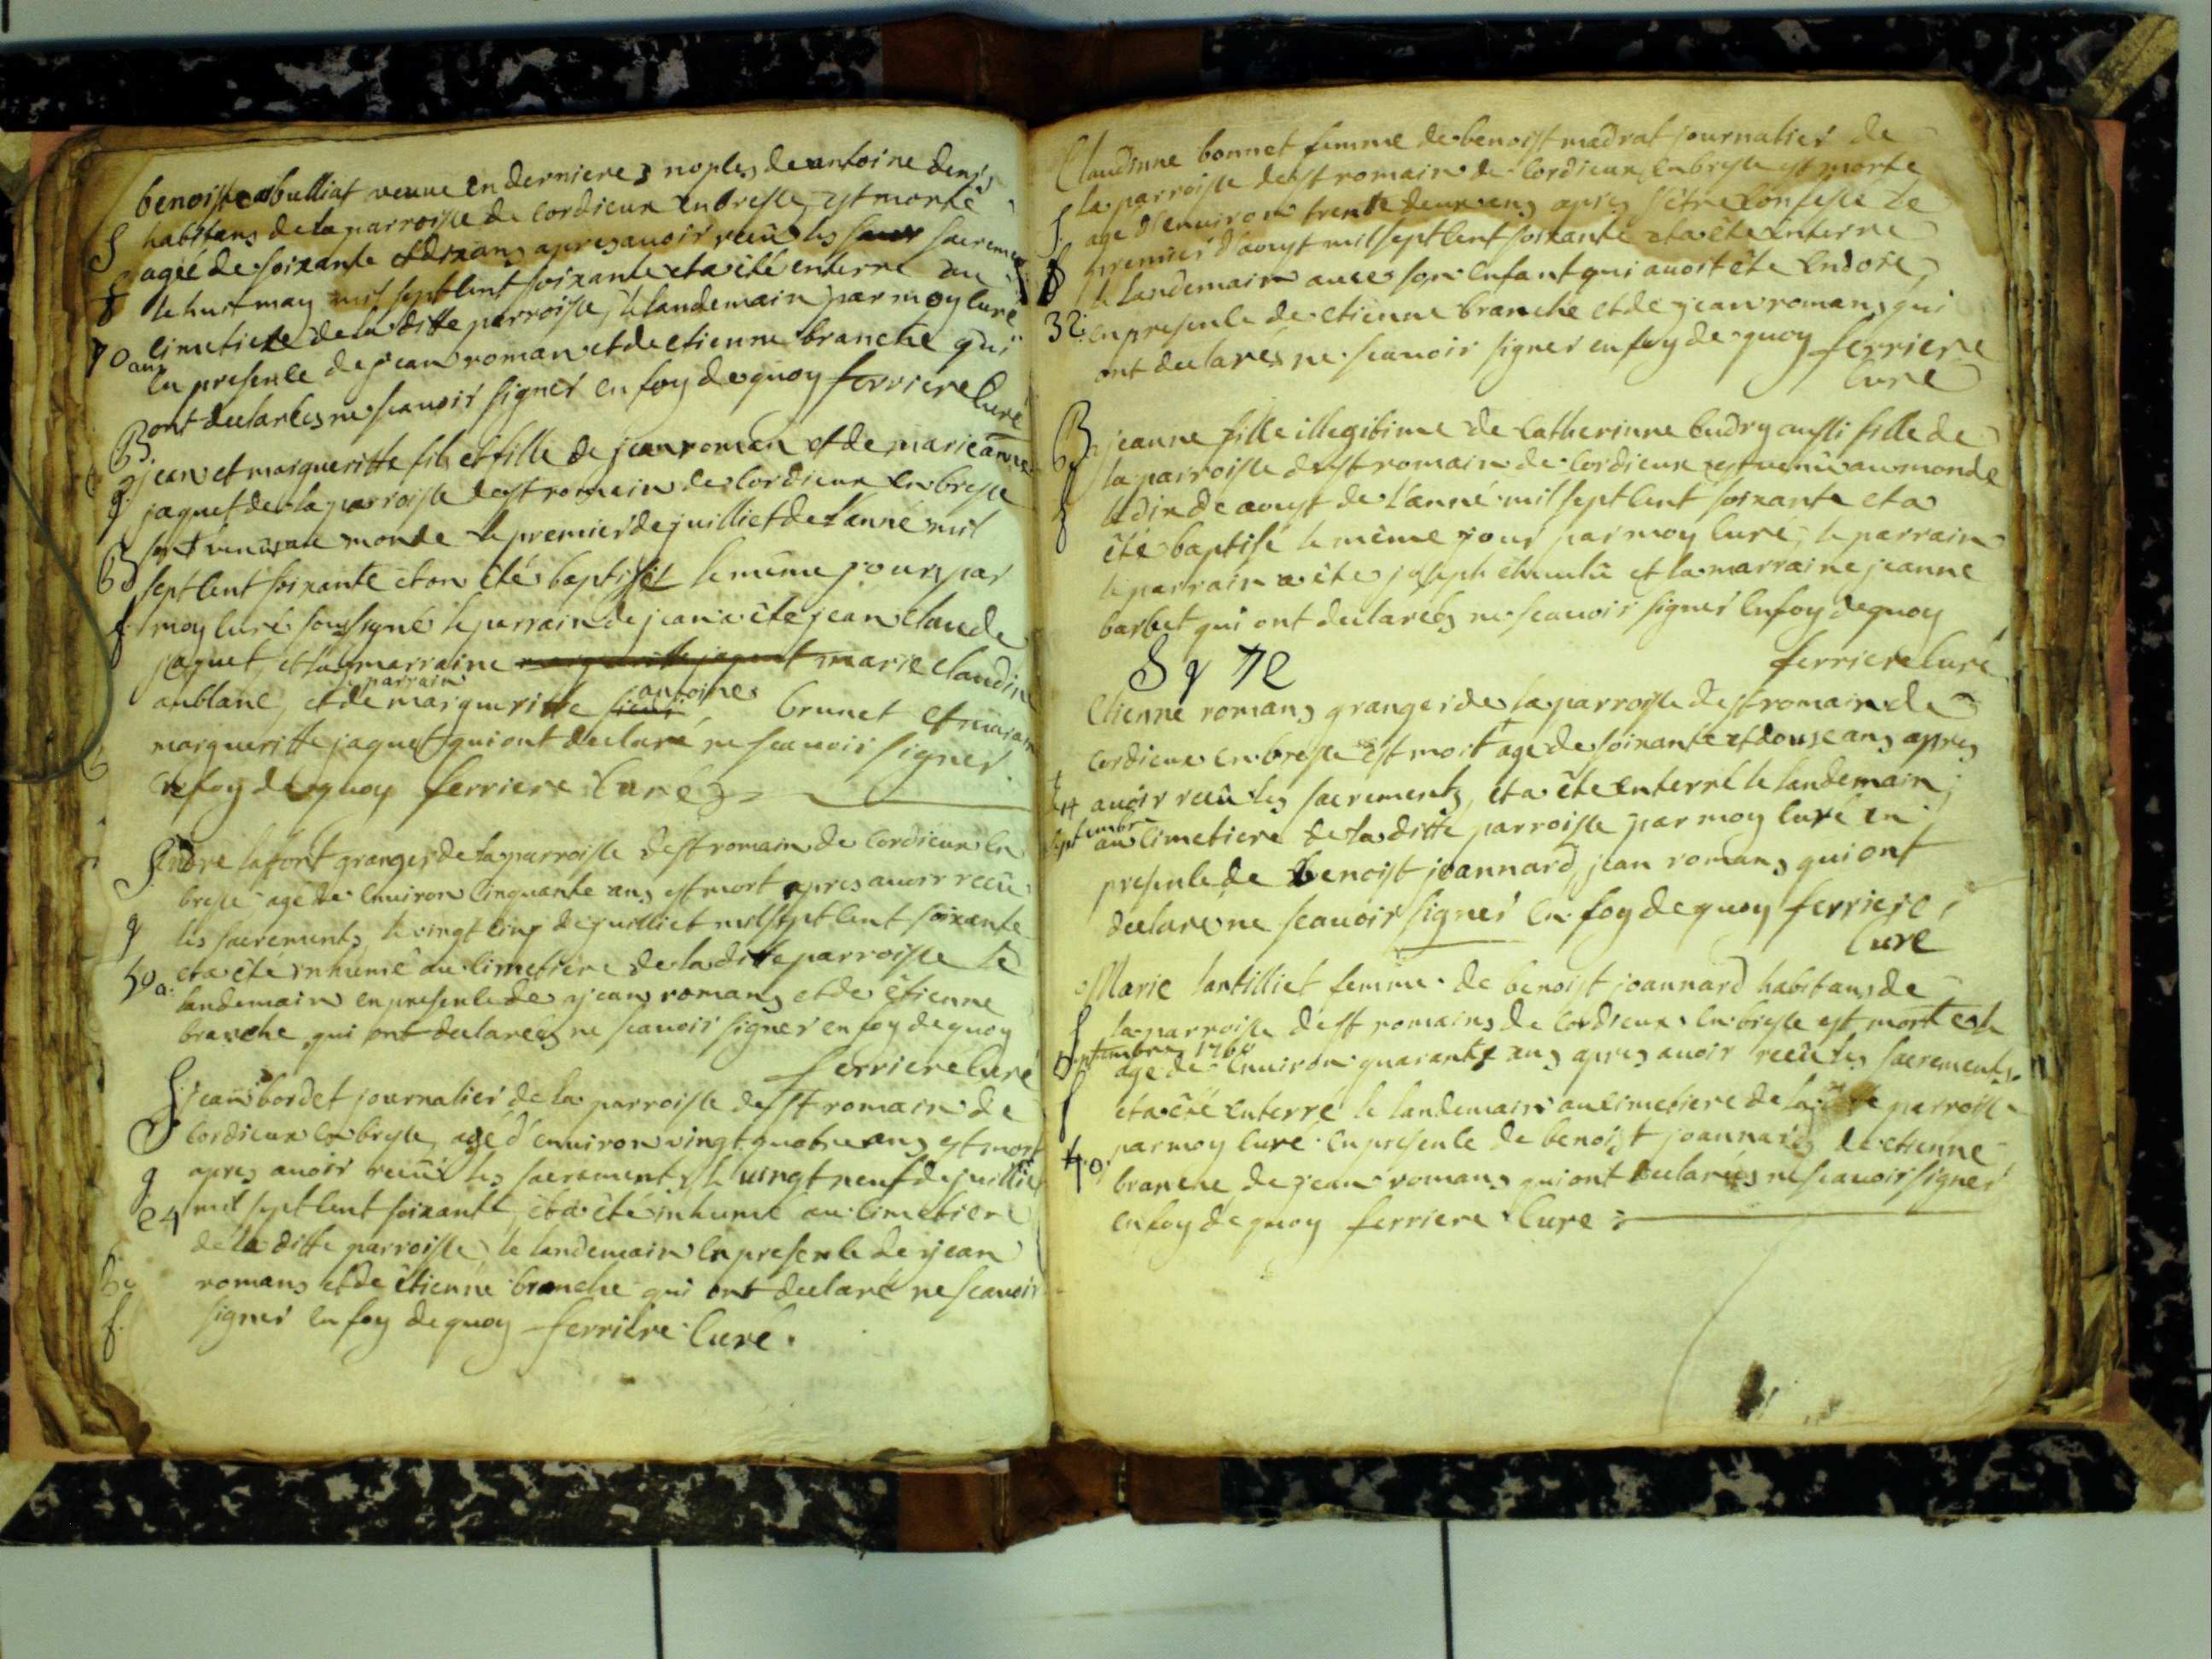 benoiste bulliat veuue en dernieres nopces de antoine denis
habitans de la parroisse de cordieux en bresse est morte
S agée de soixante et dix ans apres auoir recû les sacremens
f le huit may mil sept cent soixante et a été enterré au
70 ans cimetiere de la ditte parroisse, le landemain par moy curé
en presence de jean roman et de etienne branche qui
ont declarées ne scauoir signer en foy de quoy ferriere curé
B. jean et margueritte fils et fille de jean roman et de marie anne
g. jaquet de la parroisse de st romain de cordieux en bresse
sont venûs au monde le premier de juilliet de l'anné mil
B sept cent soixante et on été baptisés le même jour par
f. moy curé soussigné le parrain de jean a été jean claude
jaquet et la marraine marie claudine
aublanc, et de margueritte parrain antoine brunet et marraine
margueritte jaquet qui ont declaré ne scauoir signer
en foy de quoy ferriere curé
S. Andre laffont granger de la parroisse de st romain de cordieux en
bresse agé de enuiron cinquante ans est mort apres auoir recû
g les sacrements, le vingt cinq de juilliet mil sept cent soixante
50 a. et a été inhumé au cimetiere de la ditte parroisse le
landemain en presence de jean romans et de étienne
branche qui ont declareés ne scauoir signer en foy de quoy
ferriere curé
S. jean bordet journalier de la parroisse de st romain de
cordieux en bresse, agé d'enuiron vingt quatre ans est mort
g apres auoir recûs les sacrements, le vingt neuf de juilliet
24 mil sept cent soixante, et a été inhumé au cimetiere
de la ditte parroisse le landemain en presence de jean
romans et de étienne branche qui ont declaré ne scauoir
signer en foy de quoy ferriere curé.
Claudinne bonnet femme de benoist madrat journalier de
la parroisse de st romain de cordieux en bresse est morte
S. agé d'enuiron trente deux ans apres s'être confessé le
f premier d'aoust mil sept cent soixante et a été enterré
le landemain auec son enfant qui auoit été endoié,
32. en presence de etienne branche et de jean romans qui
ont declarés ne scauoir signer en foy de quoy ferriere
curé
B jeanne fille illegitime de catherinne aussi fille de
la parroisse de st romain de cordieux est venû au monde
f le dix de aoust de l'anné mil sept cent soixante et a
été baptisé le même jour par moy curé, le parrain
le parrain a été joseph et la marraine jeanne
barbet qui ont declareés ne scauoir signer en foy de quoy
ferriere curé
S g 72
Etienne romans granger de la parroisse de st romain de
cordieux en bresse est mort agé de soixante et douze ans apres
14 auoir recû les sacrements, et a été enterré le landemain
septembre au cimetiere de la ditte parroisse par moy curé en
presence de benoist joannard, jean romans qui ont
declaré ne scauoir signer en foy de quoy ferriere
curé
Marie lantilliet femme de benoist joannard habitans de
S la parroisse de st romains de cordieux en bresse est morte
septembre 1760 agé de enuiron quarante ans apres auoir recû les sacrements
f et a été enterré le landemain au cimetiere de la ditte parroisse
40. par moy curé en presence de benoist joannard, de etienne
branche de jean romans qui ont declareés ne scauoir signer
en foy de quoy ferriere curé